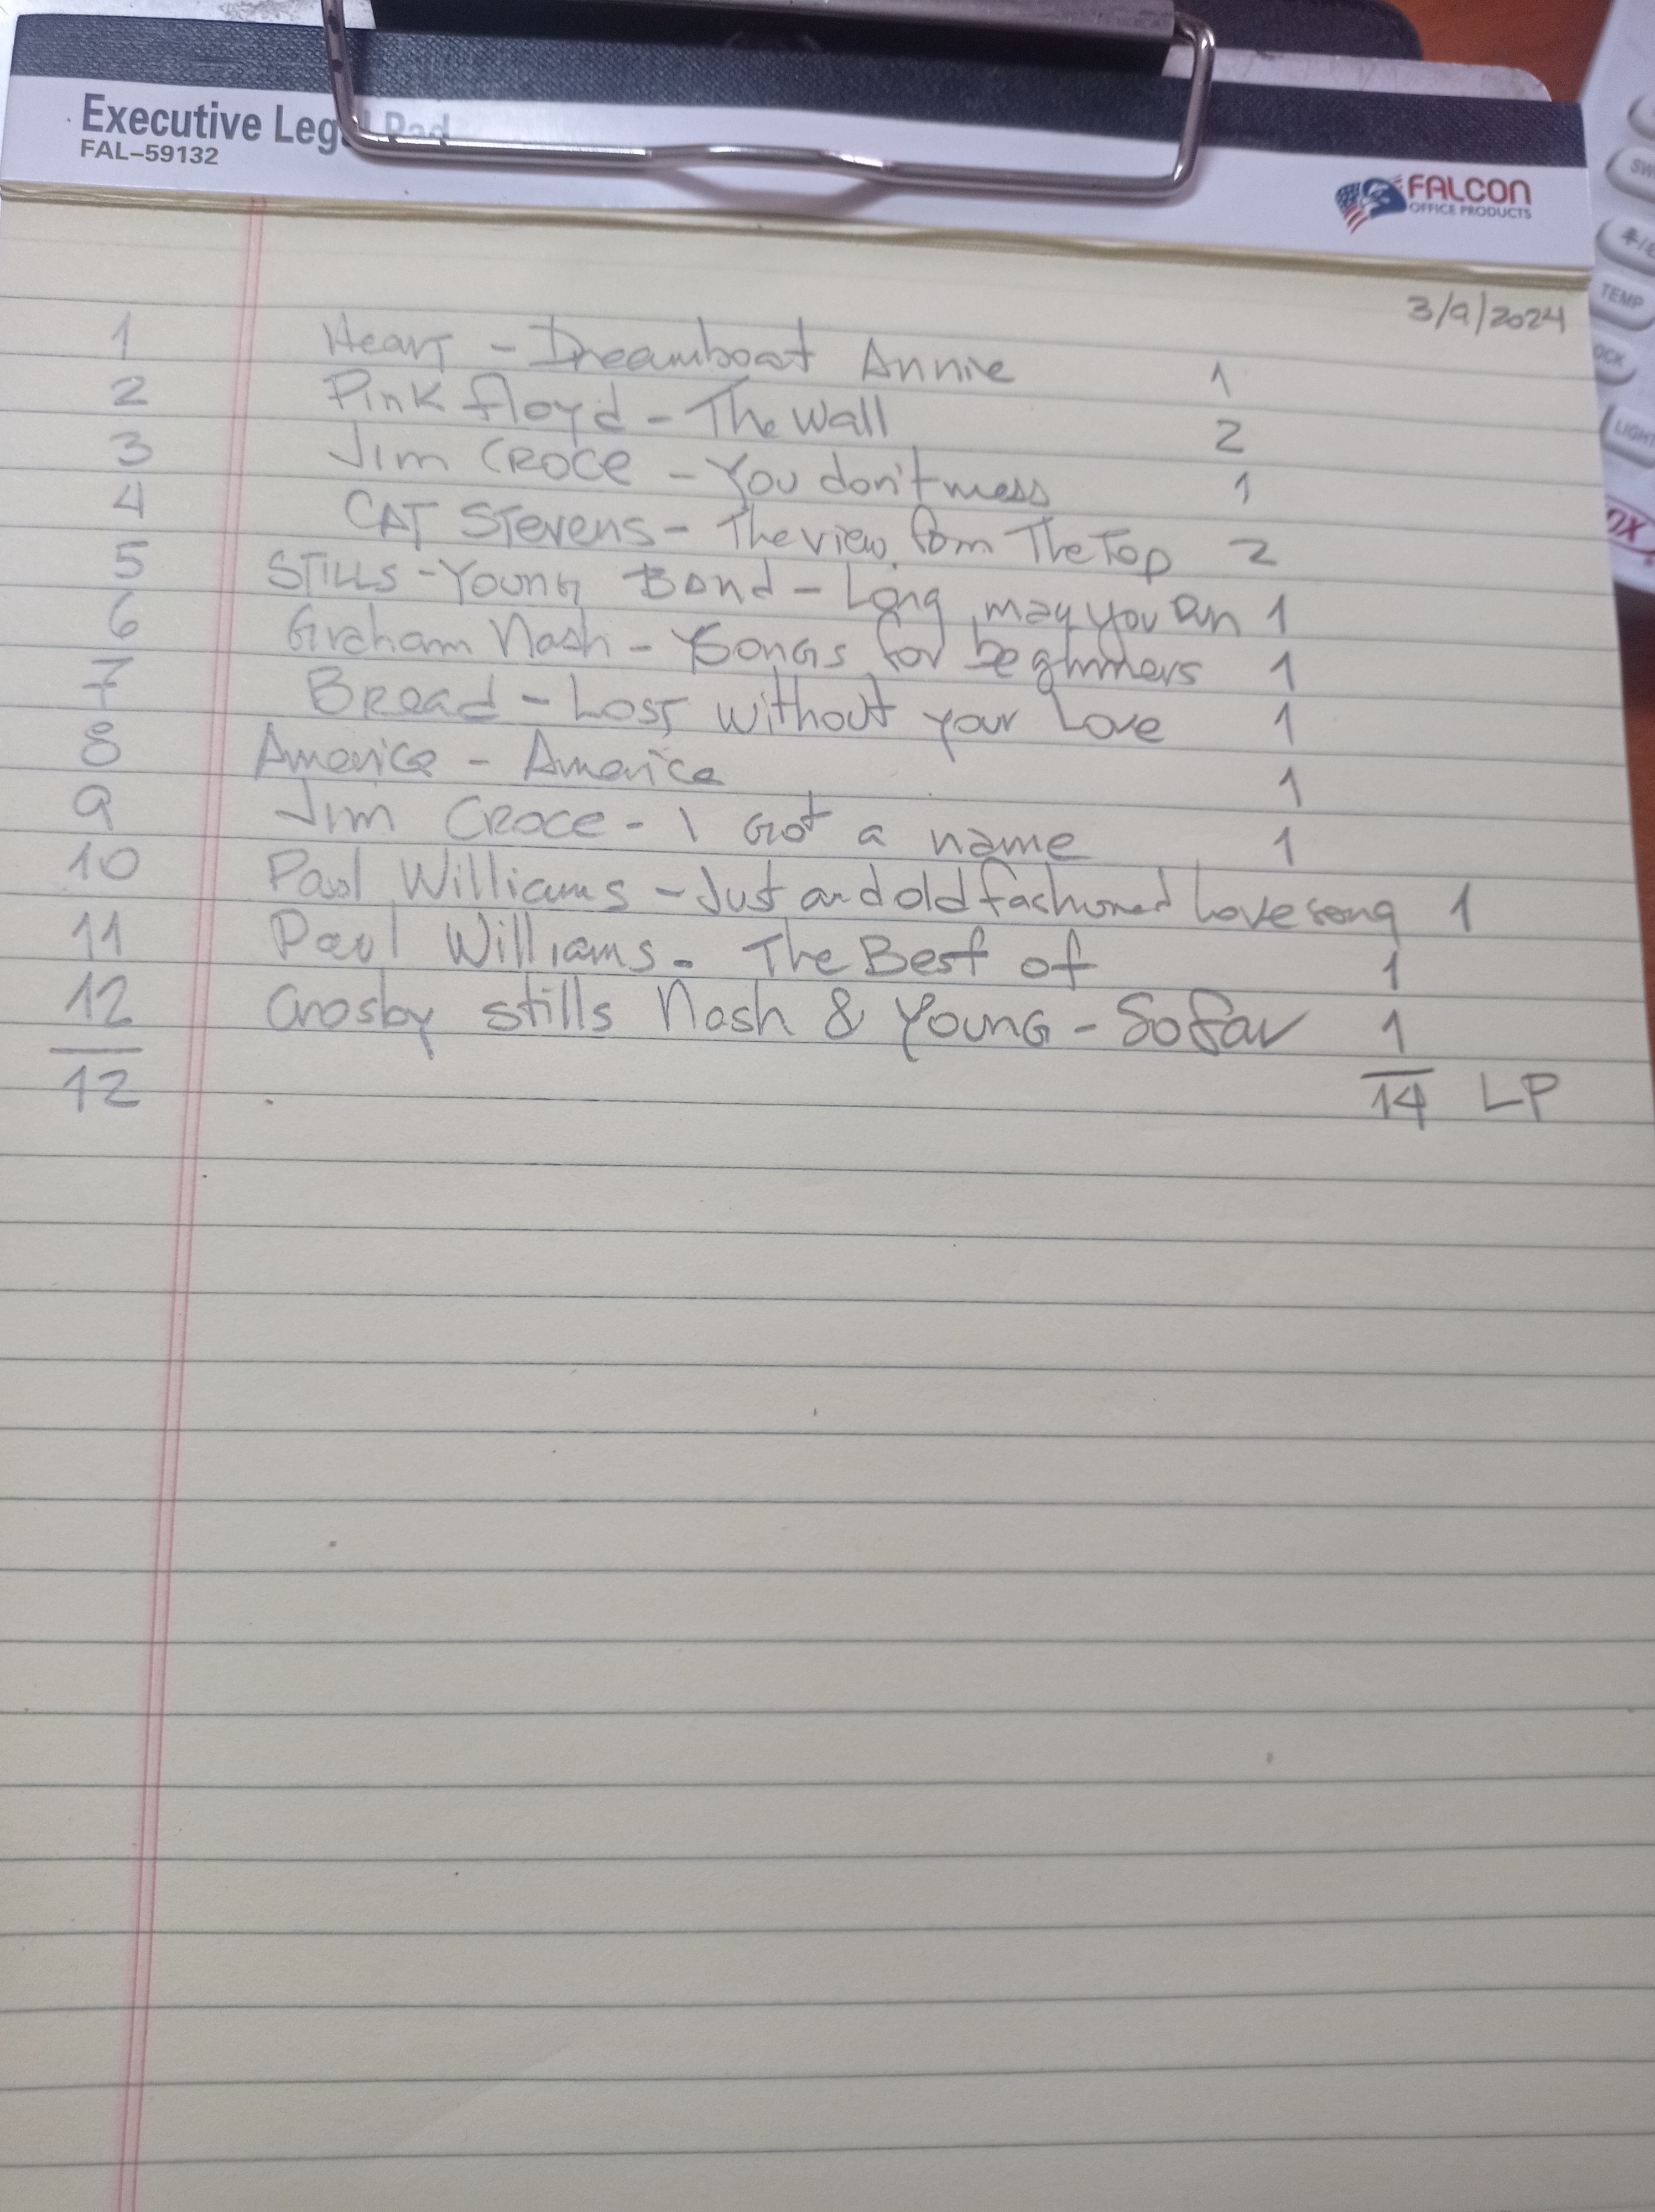 Executive Legal Pad
FAL-59132
FALCON
OFFICE PRODUCTS
3/9/2024
1 Heart - Dreamboat Annie 1
2 Pink floyd - The Wall 2
3 Jim CROCE - You don't mess 1
4 CAT STevens - The view from The Top 2
5 STILLS - YounG Band - Long may you Run 1
6 Graham Nash - SonGs for beginners 1
7 Bread - LosT without your Love 1
8 America - America 1
9 Jim CROCE - I Got a name 1
10 Paul Williams - Just and old fashioned Love song 1
11 Paul Williams - The Best of 1
12 Crosby stills Nash & YounG - So Far 1
12 14 LP
TEMP
LIGHT